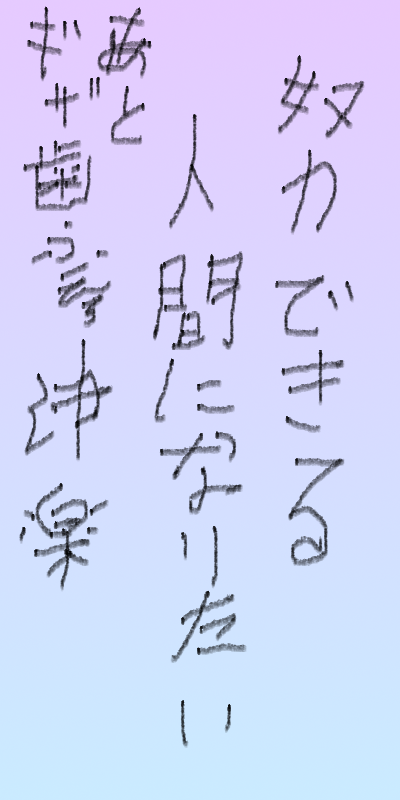 奴力できる
人間になりたい
あと
ギザ歯
楽